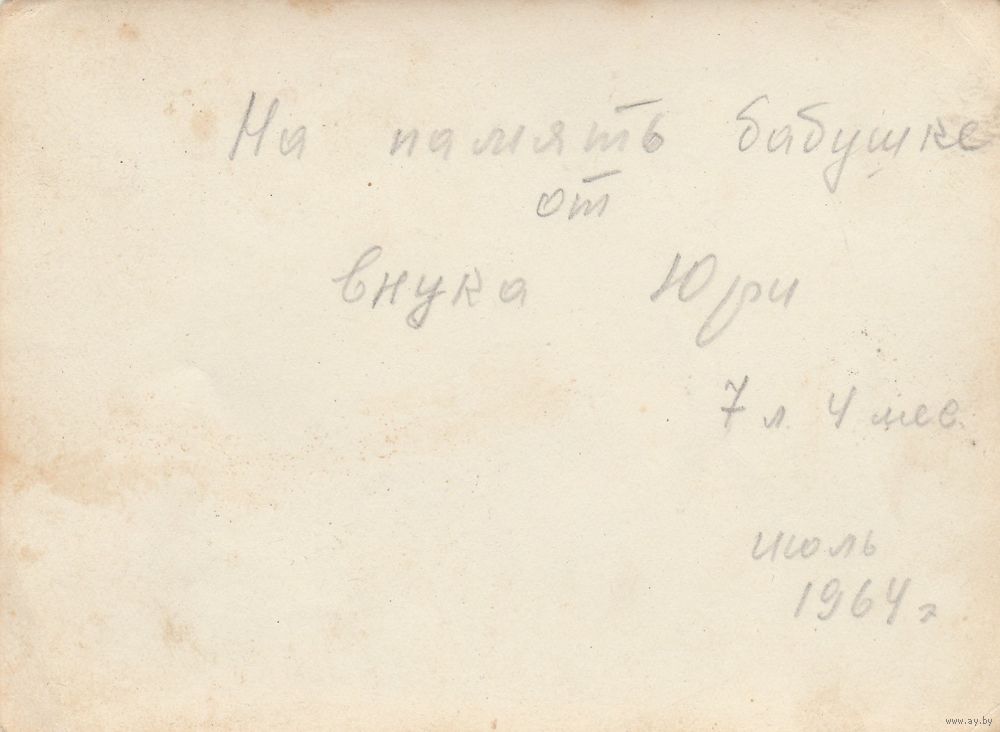 На память бабушке
от
внука Юри
7 л 4 мес.
июль
1964 г
www.ay.by